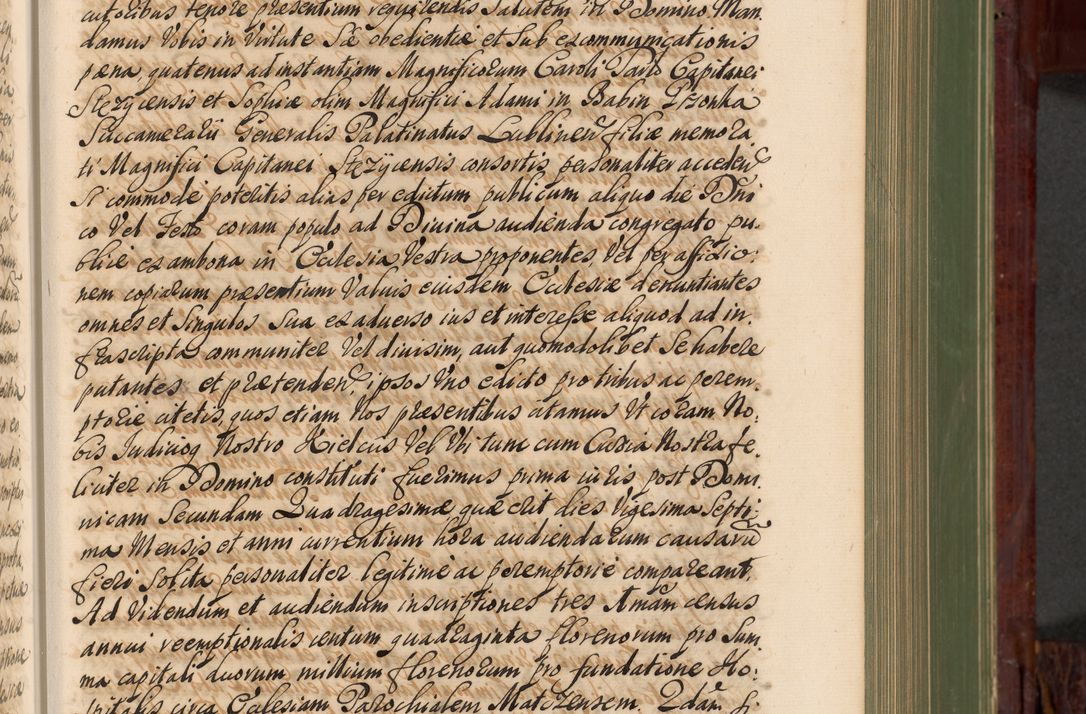 autoritas tenore præsentium requirendis Salutem in Domino Man
damus Vobis in Virtute Stæ obedientiæ et Sub excommunicationis
pæna, quatenus ad instantiam Magnificorum Caroli Tarło Capitanei
Stęzycensis et Sophiæ olim Magnifici Adami in Babin Pszonka
Succamerarii Generalis Palatinatus Lublinen filiæ memora
ti Magnifici Capitanei Stęzÿcensis consortis personaliter acceden
Si commode poteritis alias per edictum publicum aliquo die Dñi
co Vel Festo coram populo ad Divina audienda congregato pu-
blice ex ambona in Ecclesia Vestra proponentes, Vel per affixio-
nem copiarum præsentium Valuis eiusdem Ecclesiæ denuntiantes
omnes et Singulos Sua ex adverso ius et interesse aliquod ad in-
frascripta communiter Vel diuisim, aut quomodolibet Se habere
putantes et prætenden, ipsos Vno edicto pro tribus ac perem-
ptorie citetis, quos etiam Nos præsentibus citamus Vt coram No-
bis Iudicioq Nostro Kielcis Vel Vbi tunc cum Curia Nostra fe-
liciter in Domino constituti fuerimus prima iuris post Domi-
nicam Secundam Quadragesimæ quæ erit dies Vigesima Septi-
ma Mensis et anni currentium hora audiendarum causaru
fieri Solita personaliter legitime ac peremptorie compareant.
Ad Videndum et audiendum inscriptiones tres Imam census
annui reemptionalis centum quadraginta florenorum pro Sum
ma capitali duorum millium florenorum pro fundatione Ho-
spitalis circa Ecclesiam Parochialem Matczensem. 2dam